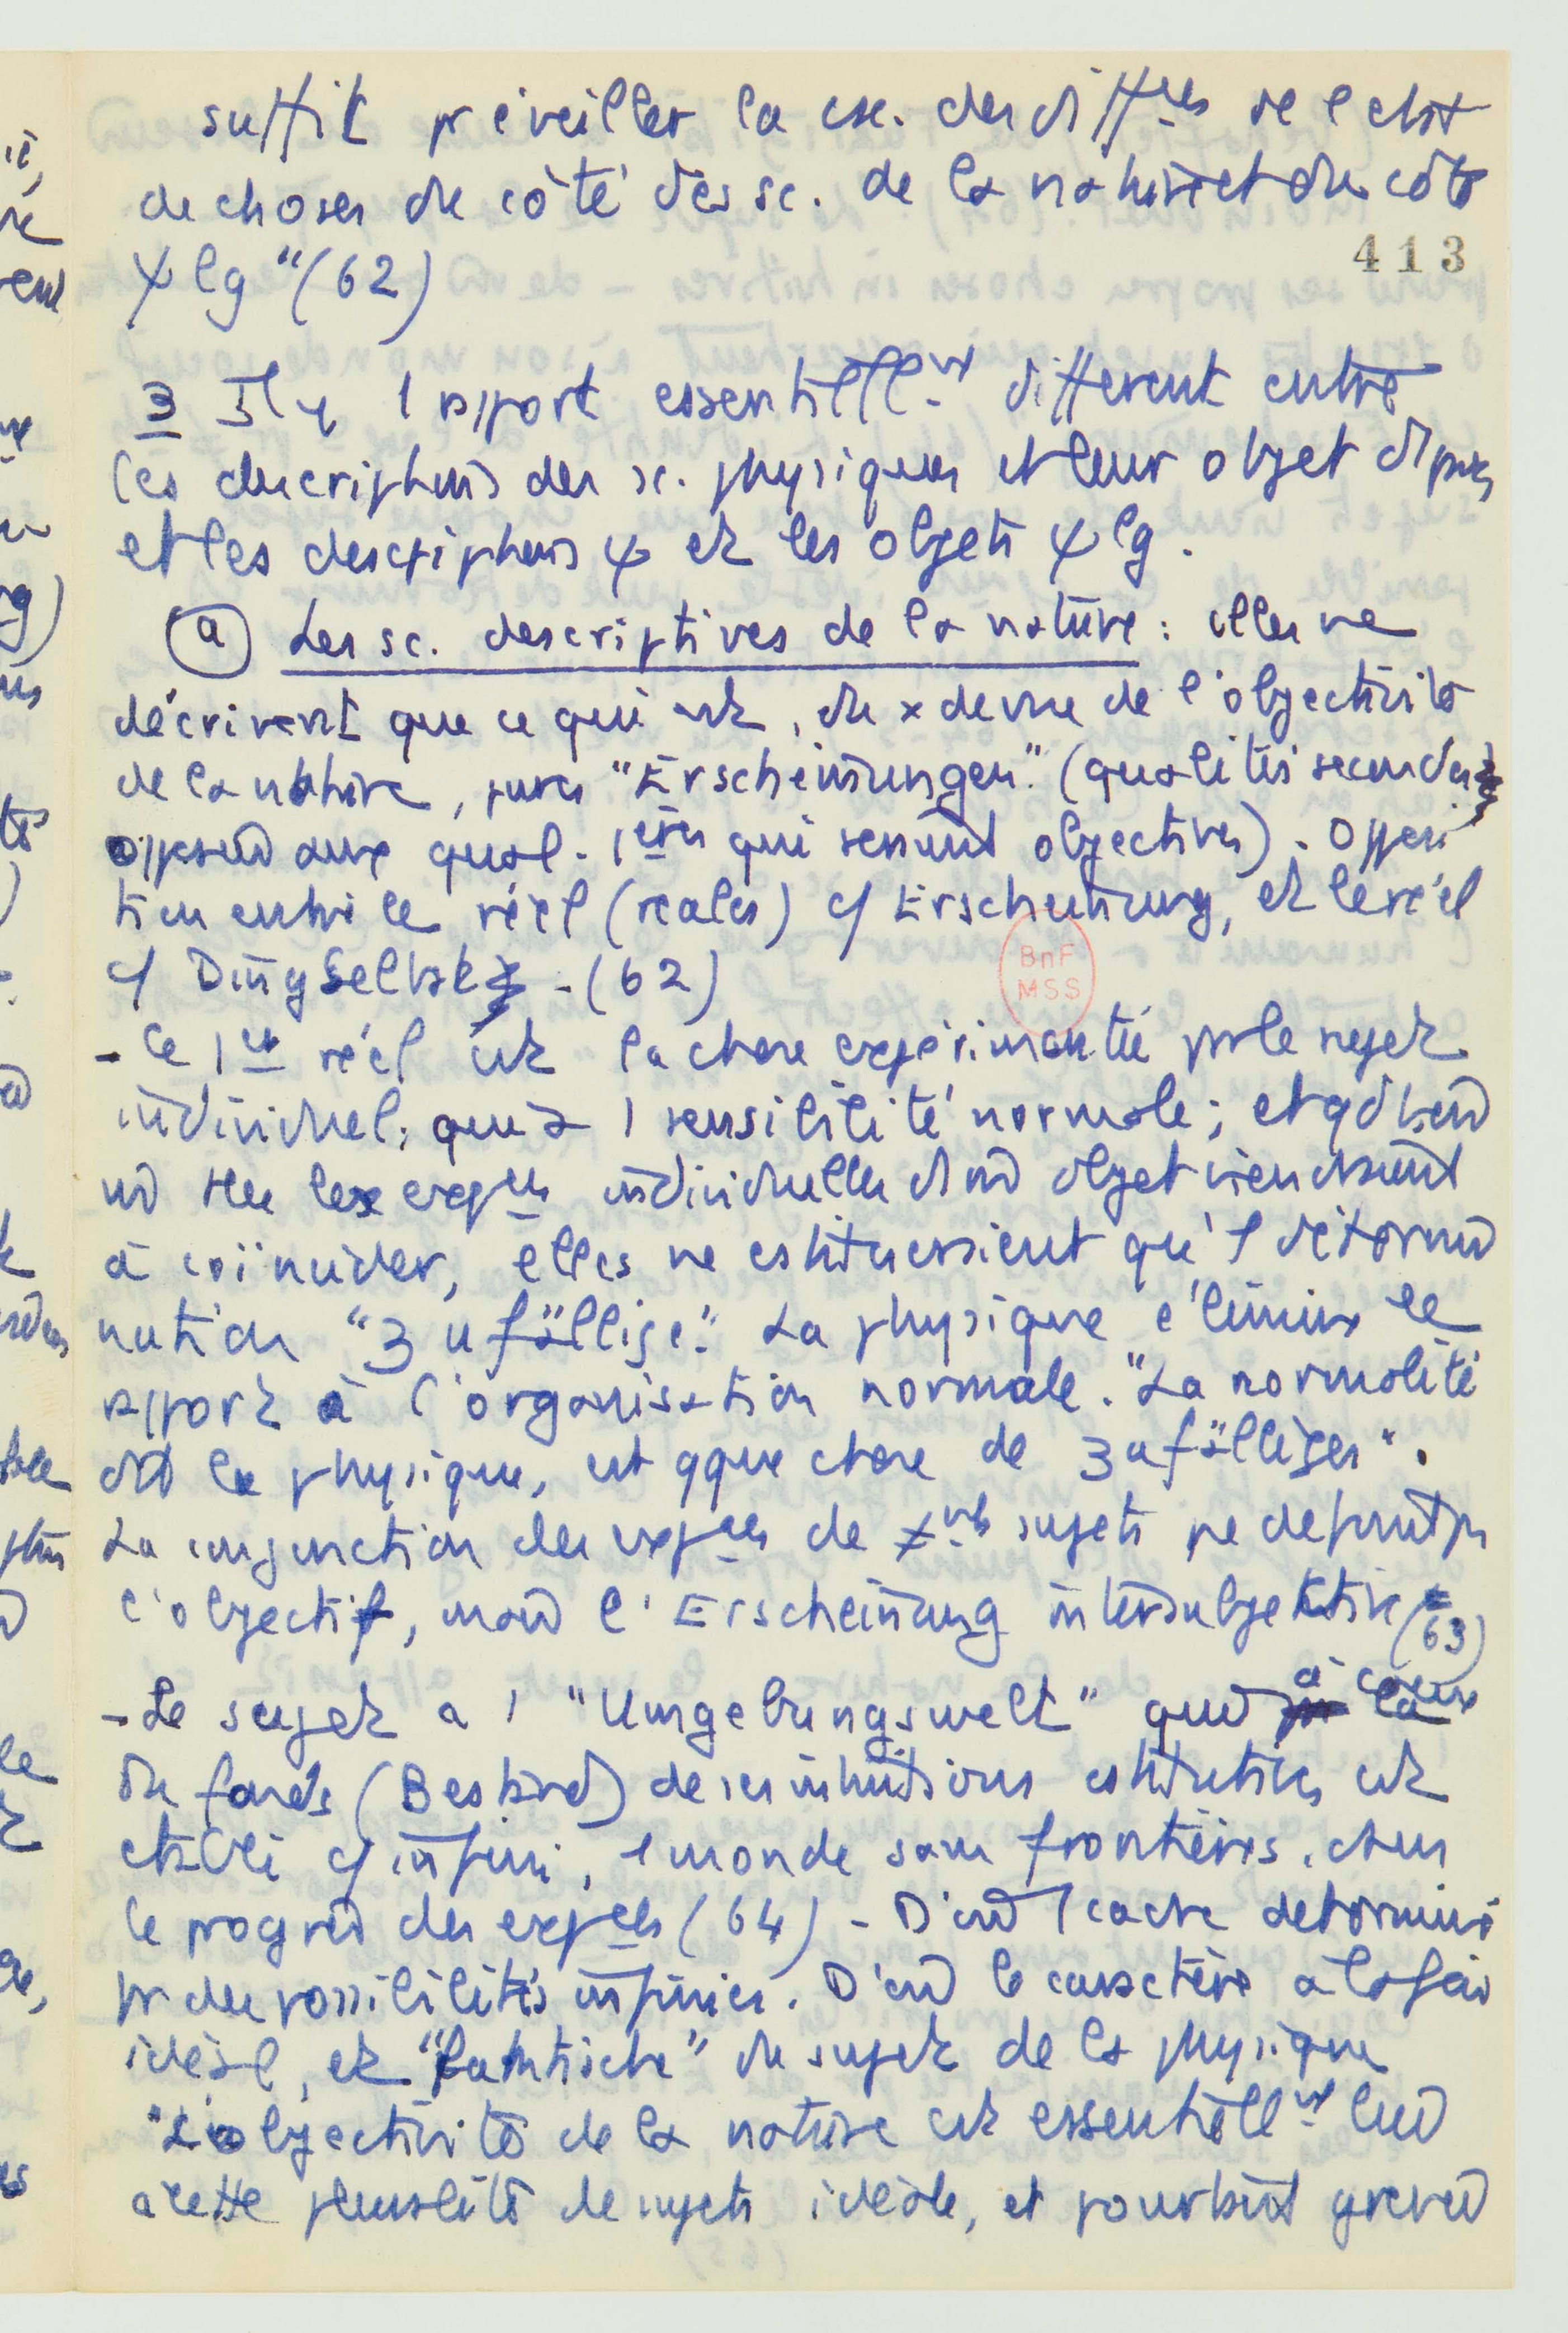 suffit pr éveiller la csc. des diffces de l'etat
de choses du côté des sc. de la nature et du côté
ψlg "(62)
413
3 Il y a 1 rapport essentiellnt différent entre
les descriptions des sc. physiques et leur objet d'
et les descriptions ψ et les objets ψlg.
(a) Les sc. descriptives de la nature : elles ne
décrivent que ce qui est, du x de vue de l'objectivité
de la nature, pures "Erscheinungen" (qualités secondes
opposées aux qual. 1ères qui seraient objectives). Opposi
tion entre le réel (reales) c/ Erscheinung, et le réel
c/ Ding selbst - (62)
BnF
MSS
- Ce 1er réel est la chose expérimentée pr le sujet
individuel, qui a 1 sensibilité normale ; et qd bien
m̂ ttes les expces individuelles d'un objet viendraient
à coïncider, elles ne cstitueraient qu'1 détermi
nation "zufällige". La physique élimine le
rapport à l'organisation normale. "La normalité
dit la physique, est qque chose de zufälliges".
La conjonction des expces de ≠nts sujets ne définit pas
l'objectif, mais l'Erscheinung intersubjektive (63)
- Le sujet a 1 "Umgebungswelt" qui à cause
du fonds (Bestand) de ses intuitions cstitutives est
établi c/ infini, 1 monde sans frontières, ds
le progrès des expces (64) - D'où 1 cadre déterminé
pr des possibilités infinies. D'où le caractère à la fois
idéal, et "faktische" du sujet de la physique
"L'objectivité de la nature est essentiellnt liée
à cette pluralité de sujets idéale, et pourtant